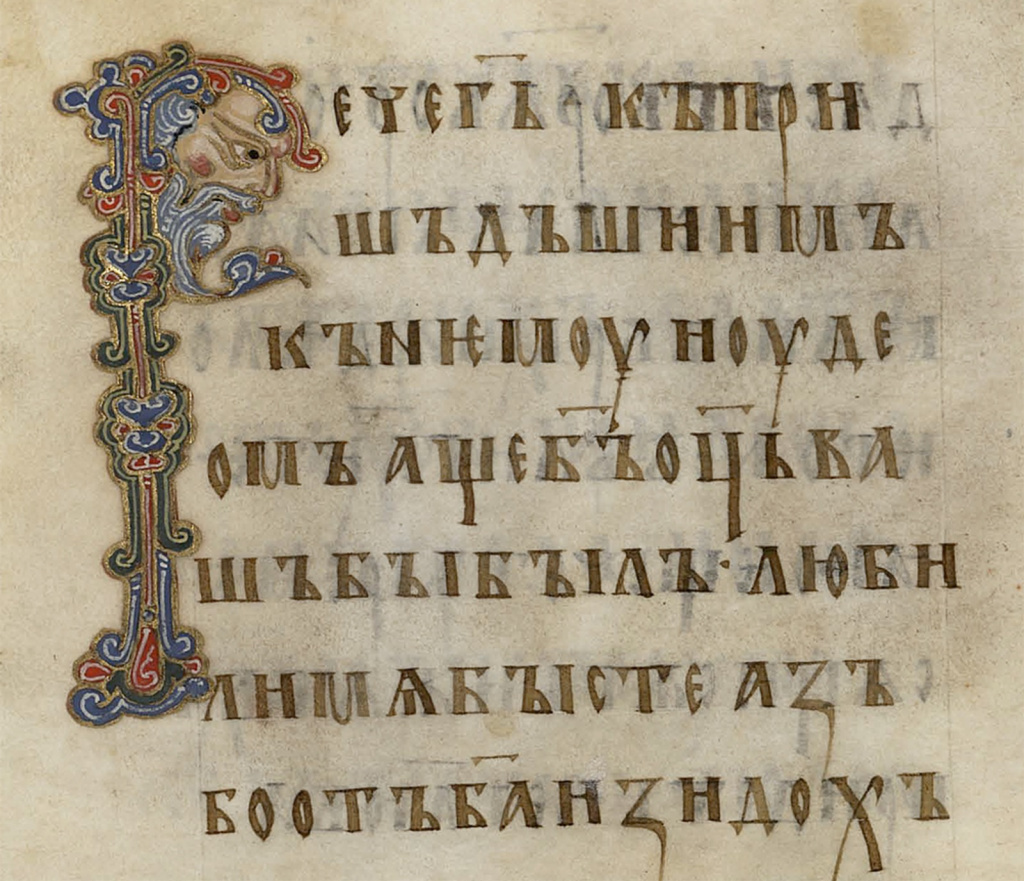 Рече гь҃ къ при
шьдъшиимъ
къ нѥмоу июде
омъ аще б҃ъ оц҃ь ва
шъ бꙑ бꙑлъ · люби
ли мѧ бꙑсте азъ
бо отъ ба҃ изидохъ